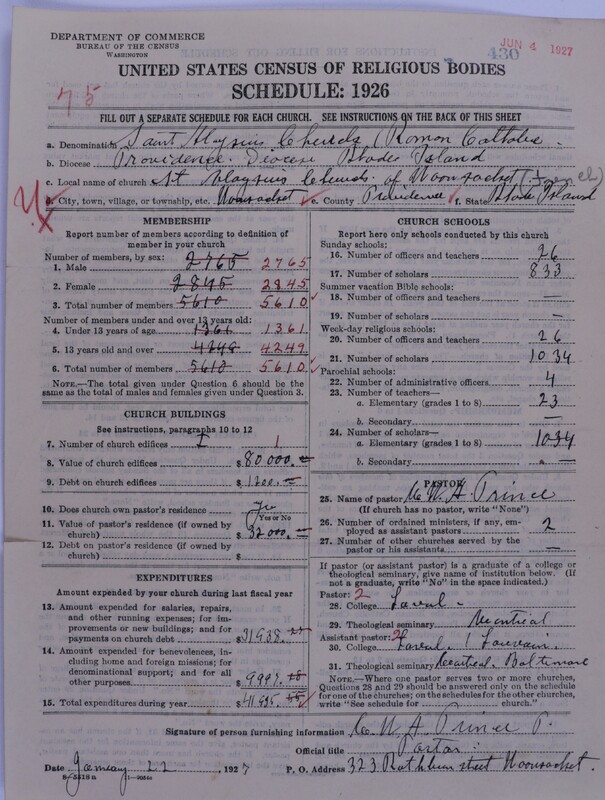 DEPARTMENT OF COMMERCE
BUREAU OF THE CENSUS
WASHINGTON
430
JUN 4 1927
UNITED STATES CENSUS OF RELIGIOUS BODIES
SCHEDULE: 1926
75
FILL OUT A SEPARATE SCHEDULE FOR EACH CHURCH. SEE INSTRUCTIONS ON THE BACK OF THIS SHEET
a. Denomination Saint Aloysius Church (Roman Catholic
b. Diocese Providence Diocese Rhode Island
c. Local name of church St Aloysius Church of Woonsocket (French)
d. City, town, village, or township, etc. Woonsocket e. County Providence f. State Rhode Island
MEMBERSHIP
Report number of members according to definition of member in your church
Number of members by sex:
1. Male 2765 2765
2. Female 2845 2845
3. Total number of members 5610 5610
Number of members under and over 13 years old:
4. Under 13 years of age 1361 1361
5. 13 years old and over 4249 4249
6. Total number of members 5610 5610
NOTE.—The total given under Question 6 should be the same as the total of males and females given under Question 3.
CHURCH BUILDINGS
See instructions, paragraphs 10 to 12
7. Number of church edifices 1 1
8. Value of church edifices $80000.
9. Debt on church edifices $1200.
10. Does church own pastor's residence
Yes or No
11. Value of pastor's residence (if owned by church) $32000.
12. Debt on pastor's residence (if owned by church) $
EXPENDITURES
Amount expended by your church during last fiscal year
13. Amount expended for salaries, repairs, and other running expenses; for improvements or new buildings; and for payments on church debt $31938.
14. Amount expended for benevolences, including home and foreign missions; for denominational support; and for all other purposes $9997.
15. Total expenditures during year $41935.
CHURCH SCHOOLS
Report here only schools conducted by this church
Sunday schools:
16. Number of officers and teachers 26
17. Number of scholars 833
Summer vacation Bible schools:
18. Number of officers and teachers —
19. Number of scholars —
Week-day religious schools:
20. Number of officers and teachers 26
21. Number of scholars 1034
Parochial schools:
22. Number of administrative officers 4
23. Number of teachers—
a. Elementary (grades 1 to 8) 23
b. Secondary —
24. Number of scholars—
a. Elementary (grades 1 to 8) 1034
b. Secondary —
PASTOR
25. Name of pastor W A Prince
(If church has no pastor, write "None")
26. Number of ordained ministers, if any, employed as assistant pastors 2
27. Number of other churches served by the pastor or his assistants —
If pastor (or assistant pastor) is a graduate of a college or theological seminary, give name of institution below. (If not a graduate, write "No" in the space indicated.)
Pastor: 2
28. College Laval.
29. Theological seminary Montréal
Assistant pastor: 2
30. College Laval. / Louvain.
31. Theological seminary Montreal. Baltimore
NOTE.—Where one pastor serves two or more churches, Questions 28 and 29 should be answered only on the schedule for one of the churches; on the schedules for the other churches, write "See schedule for church."
Signature of person furnishing information W A Prince P.
Official title Pastor.
Date January 22, 1927 P. O. Address 323 Rathbun street Woonsocket.